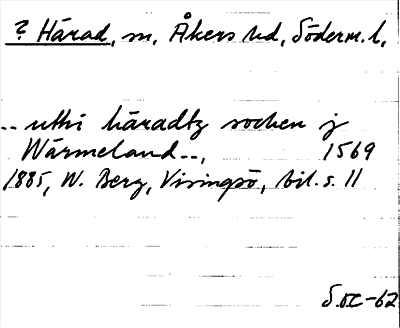 ? Härad, sn, Åkers hd, Söderm. l,
.. utthi häradtz sochen j
Wärmeland..,  1569
1885, W. Berg, Visingsö, bil. s. 11